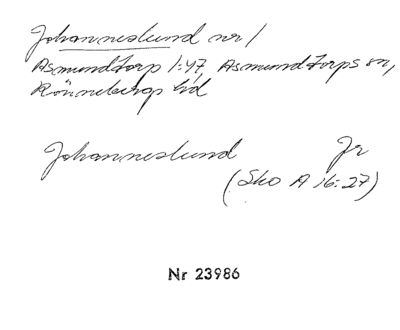 Johanneslund nr 1
Asmundtorp 1:47, Asmundtorps sn,
Rönnebergs hd
Johanneslund Jr
(Sko A 16:27)
Nr 23986